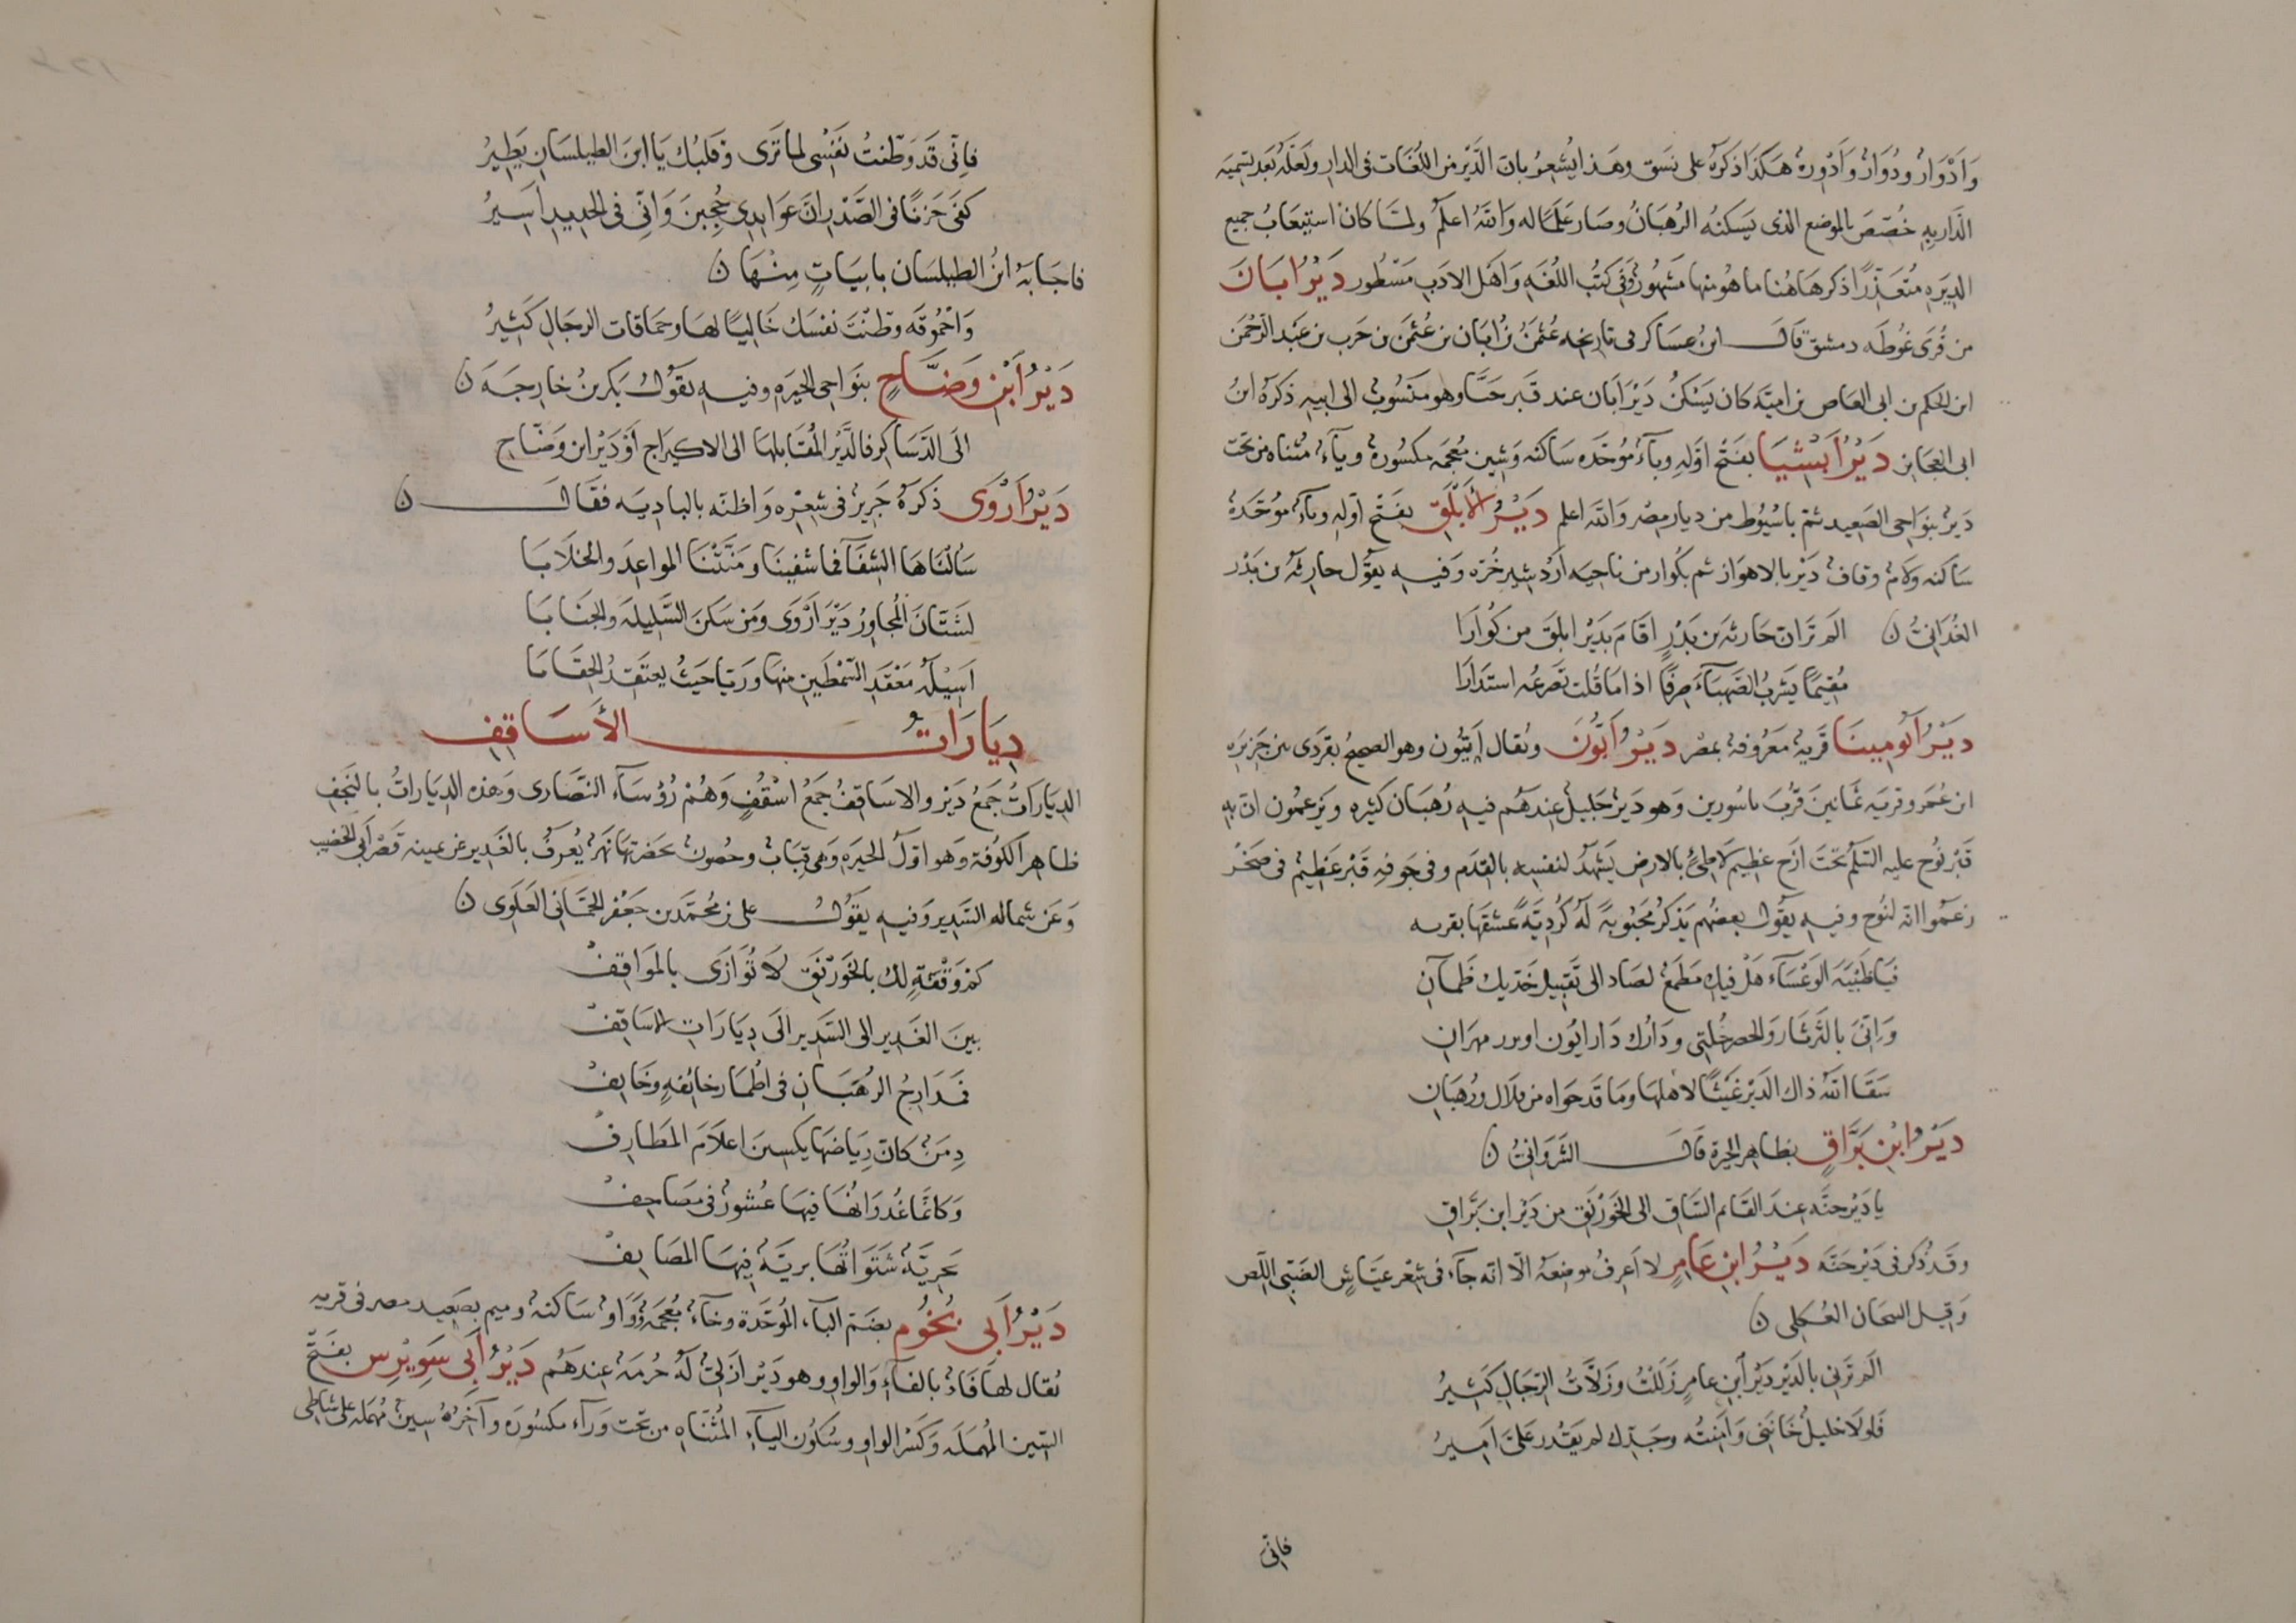 وَأَدْوَار ودُوَارٌ وَأَدْوِرة هكذا ذكره على نسق وهذا يُشعِرُ بان الدَّيْر من اللُّغَات فى الدار ولعلّه بَعد تسميه
الدار به خُصّصَ بالموضع الذى يَسكنُه الرُهبَانُ وصَار عَلَمًا له وَاللّهُ اعلم ولمّا كان استيعَابُ جميع
الدِيَرِه مُتَعَذّرًا ذكر هَاهُنا ما هو منها مَشهُورٌ وَفى كتب اللُغَه وَاهَل الادَب مَسْطُور دَيْرُ ابَانَ
من قُرَى غُوطَه دمشق قال ابنُ عسَاكر فى تاريخه عُثمنُ بن ابَان بن عُثمنَ بن حَرب بن عَبد الرّحمن
ابن الحكم بن ابى العَاص بن اميَّه كان يَسْكنُ دَيْرَ ابَان عند قَبر حَسَّا وهو منسُوبٌ الى ابيه ذَكرَهُ ابنُ
ابى العجَايز دَيْرُ أَبْشيَا بفَتْح اوّلِهِ وبآءٌ مُوحّدَه سَاكنه وَشين مُعجمَه مكسُورهٌ ويآءٌ مُثناه من تحت
دَيرٌ بنوَاحِى الصَعيد ثمّ باسْيُوط من ديَار مِصْر وَاللّه اعلم دَيْرُ الأَبْلَقِ بفَتْح اوّلهِ وبآءٌ مُوحّدةٌ
سَاكنه ولامٌ وقافٌ دَيْر بالاهوَاز ثم بكوار من ناحيه اَرْد شير خُرّه وَفيه يقوُل حارثَه بن بَدْر
الغُدَانىُّ ن الم تَران حَارثَه بن بَدْرٍ اقَام بَديْرِ ابلق من كُوَارَا
مُقيمًا يَشربُ الصَّهبَآءَ صِرفًا اذا مَا قُلت تصرعُه استدَارَا
دَيْرُ أبُومِينَا قَريهٌ مَعْرُوفهٌ بمصْر دَيْرُ أَبّوُنَ ويُقال أبَيُون وهو الصحيح بقردَى بين جَزيرَه
ابن عُمَر وقريَه ثمَانينَ قُربَ باسُورين وَهو دَيْرٌ جَليلٌ عِندهُم فيهِ رُهبَان كثيره ويَزعمُون انّ بهِ
قَبْر نُوح عليه السّلم تحتَ ازَجٍ عظيم لاطِئٍ بالارض يَشهَدُ لنفسِه بالقِدَم وفى جَوفِهِ قَبْر عَظيمٌ فى صَخْر
زعَمُوا انّه لنُوحِ وفيهِ يقُول بعضُهم يَذكرُ مَحبُوبَهً لهُ كُرديَّهً عشقَهَا بقربه
فيَاظَبيَةَ الوَعْسَآءِ هَلْ فيكِ مَطمَعٌ لصَاد الى تَقبيل خَدَيك ظَمآنِ
وَانّى بالثَرثَار وَالحصر خُلّتى ودَارُك دَار ابوُن اوبرد مهرَان
سَقَا اللّهُ ذاك الدَيْر غَيثًا لاهلهَا ومَا قَد حوَاه من قلال ورُهبَانِ
دَيْرُ ابْنِ بَرَّاقٍ بظاهِر الحيرة قال الثَروَانىُّ ن
يا دَيْر حنَّه عِندَ القَائم السَّاق الى الخَورْنَق من دَيْر ابن بَرَّاقِ
وقَد ذُكر فى دَيْر حَنَّه دَيْرُ ابنِ عَامِرٍ لا اَعرفُ مَوضِعَهُ الّا انّه جآء فى شِعْر عيّاشٍ الضَبّىِ اللّص
وَقيل السحان العُكلى ن
الم تَرَنى بالدَيْر دَيْرِ ابن عامرٍ زَللْتُ وزَلّاَتُ الرّجَالِ كَثيرُ
فلولَا خليلٌ خَانَنى وَامنتُه وجَدِّك لم يَقدُر علىَّ امَيرُ
فانّى
فاِنّى قَد وطّنتُ نَفسِى لما تَرى وقلبُك يَا ابنَ الطيلسَانِ يَطِيرُ
كفَى حَزنًا فى الصَّدْر انَ عَوَايدى حُجِبنَ وَانّى فى الحدِيدِ اَسَيرُ
فاجَابَهُ ابنُ الطيلسَان بابيَاتٍ مِنْهَا ن
وَاحْمُوقَه وطّنتَ نفسَك خَاليًا لهَا وحمَاقات الرجَالِ كَثيرُ
دَيْرُ ابْنِ وَضَّاحٍ بنَوَاحِى الحيرَهِ وفيهِ يقُولُ بَكر بنُ خارجَهَ ن
الَى الدَسَاكِر فالدَّيْر المُقابلهَا الى الاكيرَاح اَوْ دَيْر ابن وَضّاحِ
دَيْرُ أَرْوَى ذكرهُ جَريرٌ فى شعْرِه وَاظنّه بالباديَه فقَالَ ن
سَألنَاهَا الشِفَآءَ فما شفينَا ومَنَّتْنَا المواعِدَ والخلَابَا
لشتّانَ المُجاوِرُ دَيرَ اَرْوَى ومَن سَكنَ السَّليلَه والجنَابَا
اَسِيْلَهُ مَعْقَدِ السّمطَين منهَا ورَيّا حَيثُ يعتَقدُ الحِقَابَا
دِيَارَاتُ الأَسَاقِفِ
الديَاراتُ جَمْعُ دَير والاسَاقِفُ جَمْعُ اسْقُفٍ وَهُمْ رُؤسَآء النّصَارى وَهَذه الديَاراتُ بالنَجَفِ
ظاهِر الكوُفَة وَهو اوّلُ الحيرَه وَهى قِبَابٌ وحصُونٌ بحضرتهَا نَهرٌ يُعرَفُ بالغَدير عَن يمينه قَصْر أَبى الخصيب
وَعَن شماله السَّدير وَفيه يقوُلُ على بن مُحمّدَ بن جَعْفر الحمّانى العَلوَى ن
كم وَقْفَةٍ لك بالخَوَرْنَقِ لا تُوَازَى بالموَاقِفْ
بينَ الغَديرِ الى السَّدير الَى دِيَارَاتِ الاسَاقِفْ
فمَدَارِجُ الرُهبَانِ فى اَطْمَارِ خائفهٍ وخَايفْ
دِمَنٌ كانّ رِيَاضَها يكسِينَ اعلَامَ المطارِفْ
وَكانّمَا غُدرَانُهَا فيهَا عُشورٌ فى مصَاحِفْ
بحريَّةٌ شَتوَاتُها بريَّةٌ فيهَا المصَايفْ
دَيْرُ أَبى بَخُوم بضَم البآء المُوحّدة وخآءٌ مُعجمَهٌ وَواوٌ سَاكنهٌ وميم بصَعيد مصر فى قريه
يُقال لها فَاوْ بالفآءِ وَالواو وهو دَيْر ازَلىٌ لَهُ حُرمَهٌ عِندَهُم دَيْرُ أَبى سَوِيْرس بفَتْحِ
السّين المُهمَله وَكسْر الواو وسُكوُن اليآءِ المُثنّاهِ من تحت ورَآء مكسُورَه وآخرُهُ سِينٌ مُهمله على شاطى